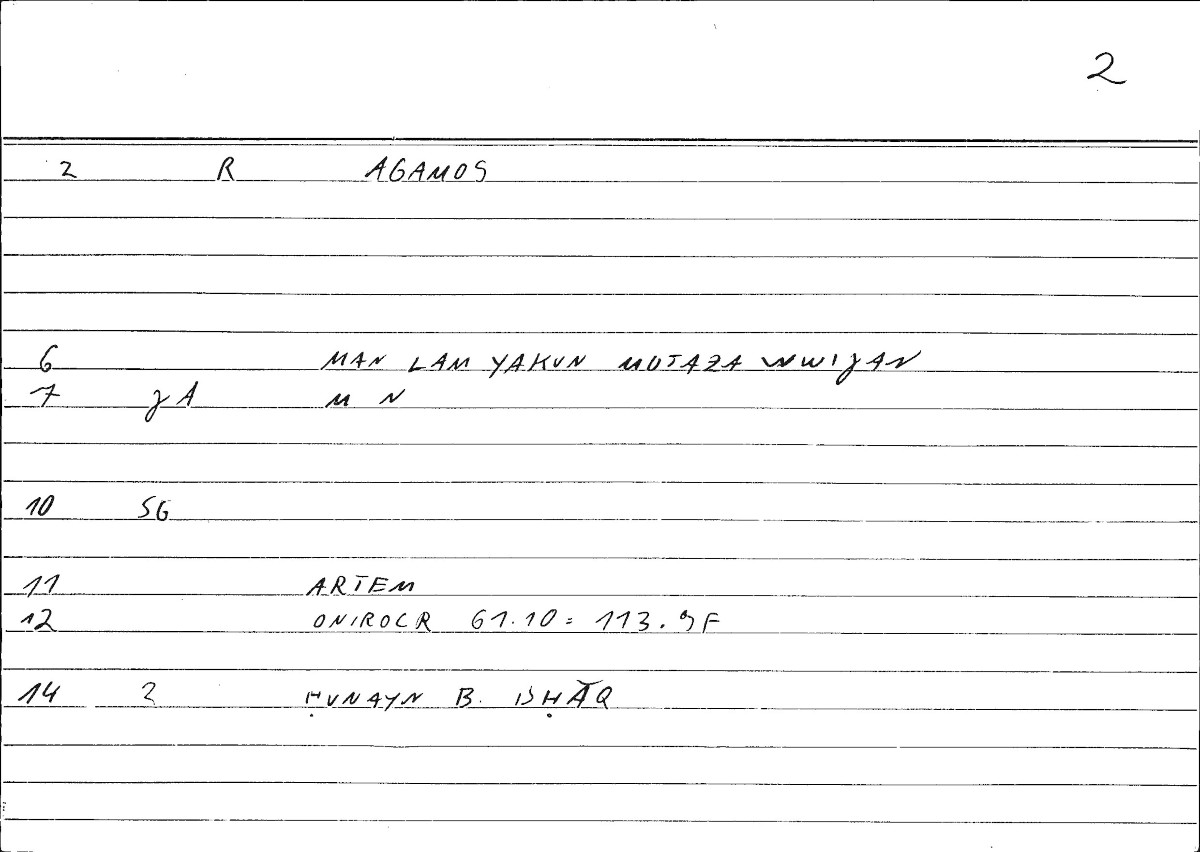 2
2 R AGAMOS
6 MAN LAM YAKUN MUTAZA WWIJAN
7 JA M N
10 SG
11 ARTEM
12 ONIROCR 61.10 = 113.9F
14 2 ḤUNAYN B. ISḤĀQ